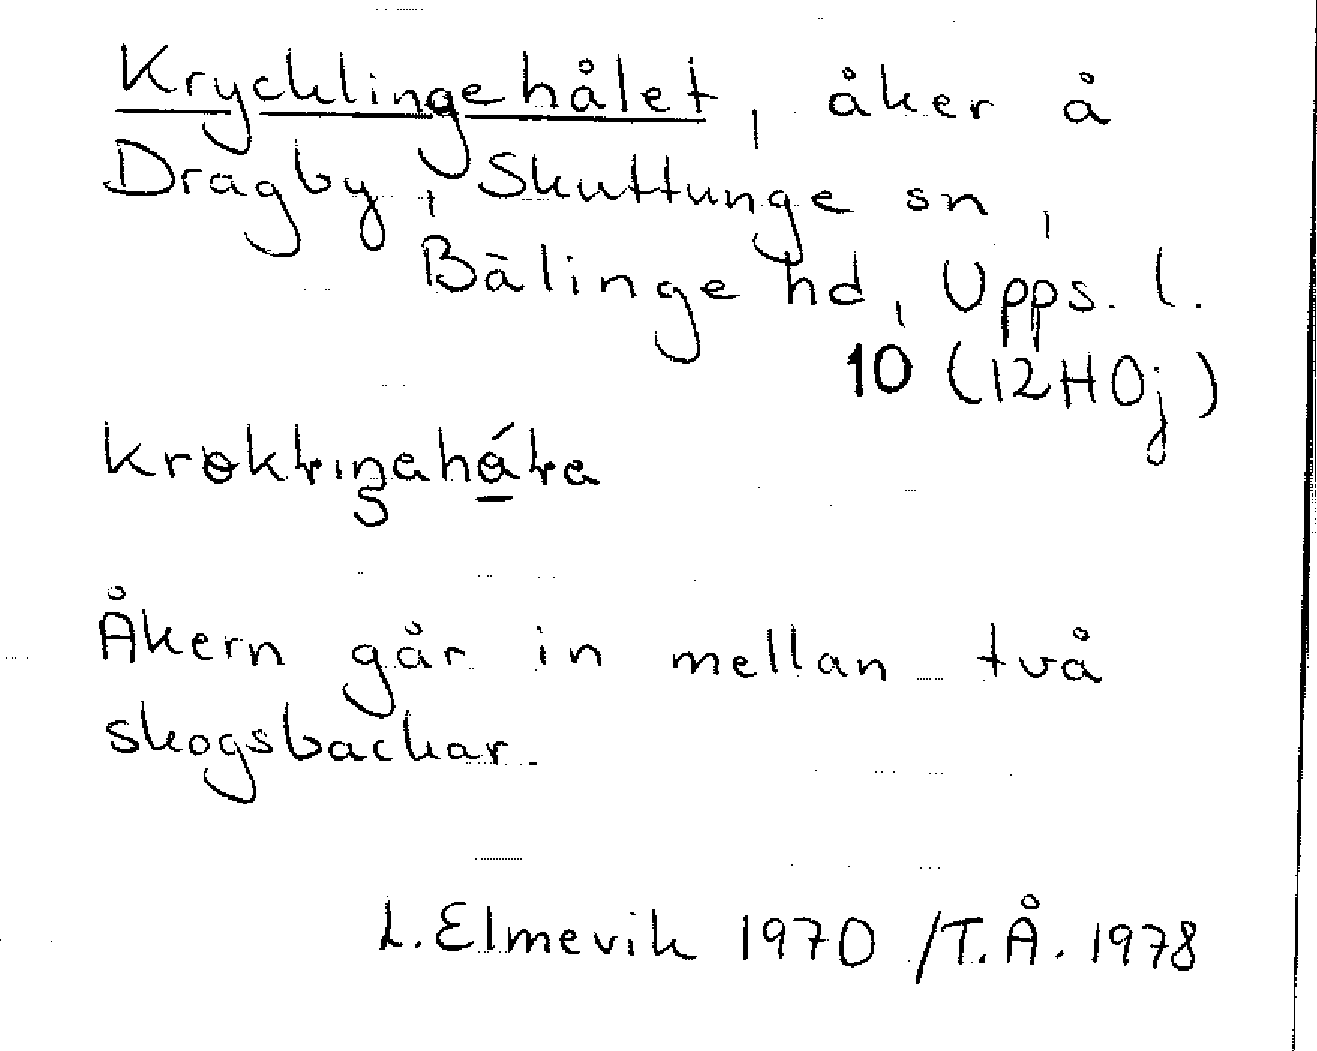 Krycklingehålet, åker å
Dragby, Skuttunge sn,
Bälinge hd, Upps. l.
10 (12H0j)
Åkern går in mellan två
skogsbackar.
L. Elmevik 1970 /T.Å. 1978